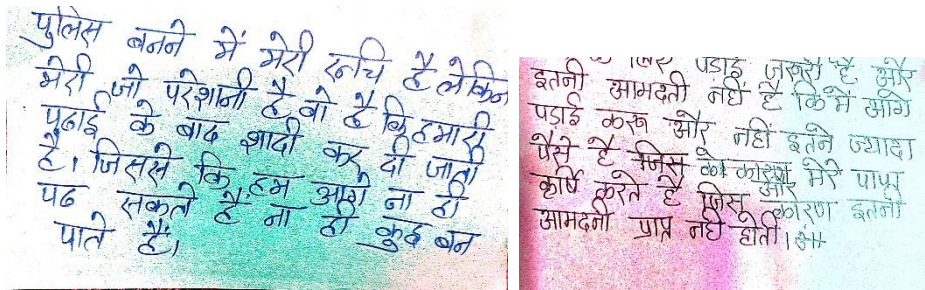 पुलिस बनने में मेरी रूचि है लेकिन
मेरी जो परेशानी है वो है कि हमारी
पढाई के बाद शादी कर दी जाती
है। जिससे कि हम आगे ना ही
पढ सकते हैं ना ही कुछ बन
पाते हैं।
के लिए पडाई जरूरी है और
इतनी आमदती नहीं है कि मैं आगे
पडाई करू और नहीं इतने ज्यादा
पैसे है जिस को कारण और मेरे पापा
कृषि करते है जिस कारण इतनी
आमदनी प्राप्त नही होती।